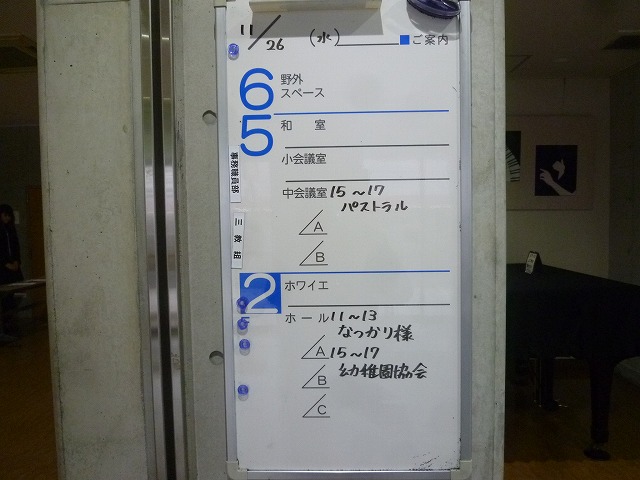 11/26 (水) ■ご案内
6 野外
スペース
5 和 室
小会議室
事務職員部
中会議室 15～17
パストラル
A
川教組
B
2 ホワイエ
F
ホール 11～13
なっかり様
A 15～17
B 幼稚園協会
C